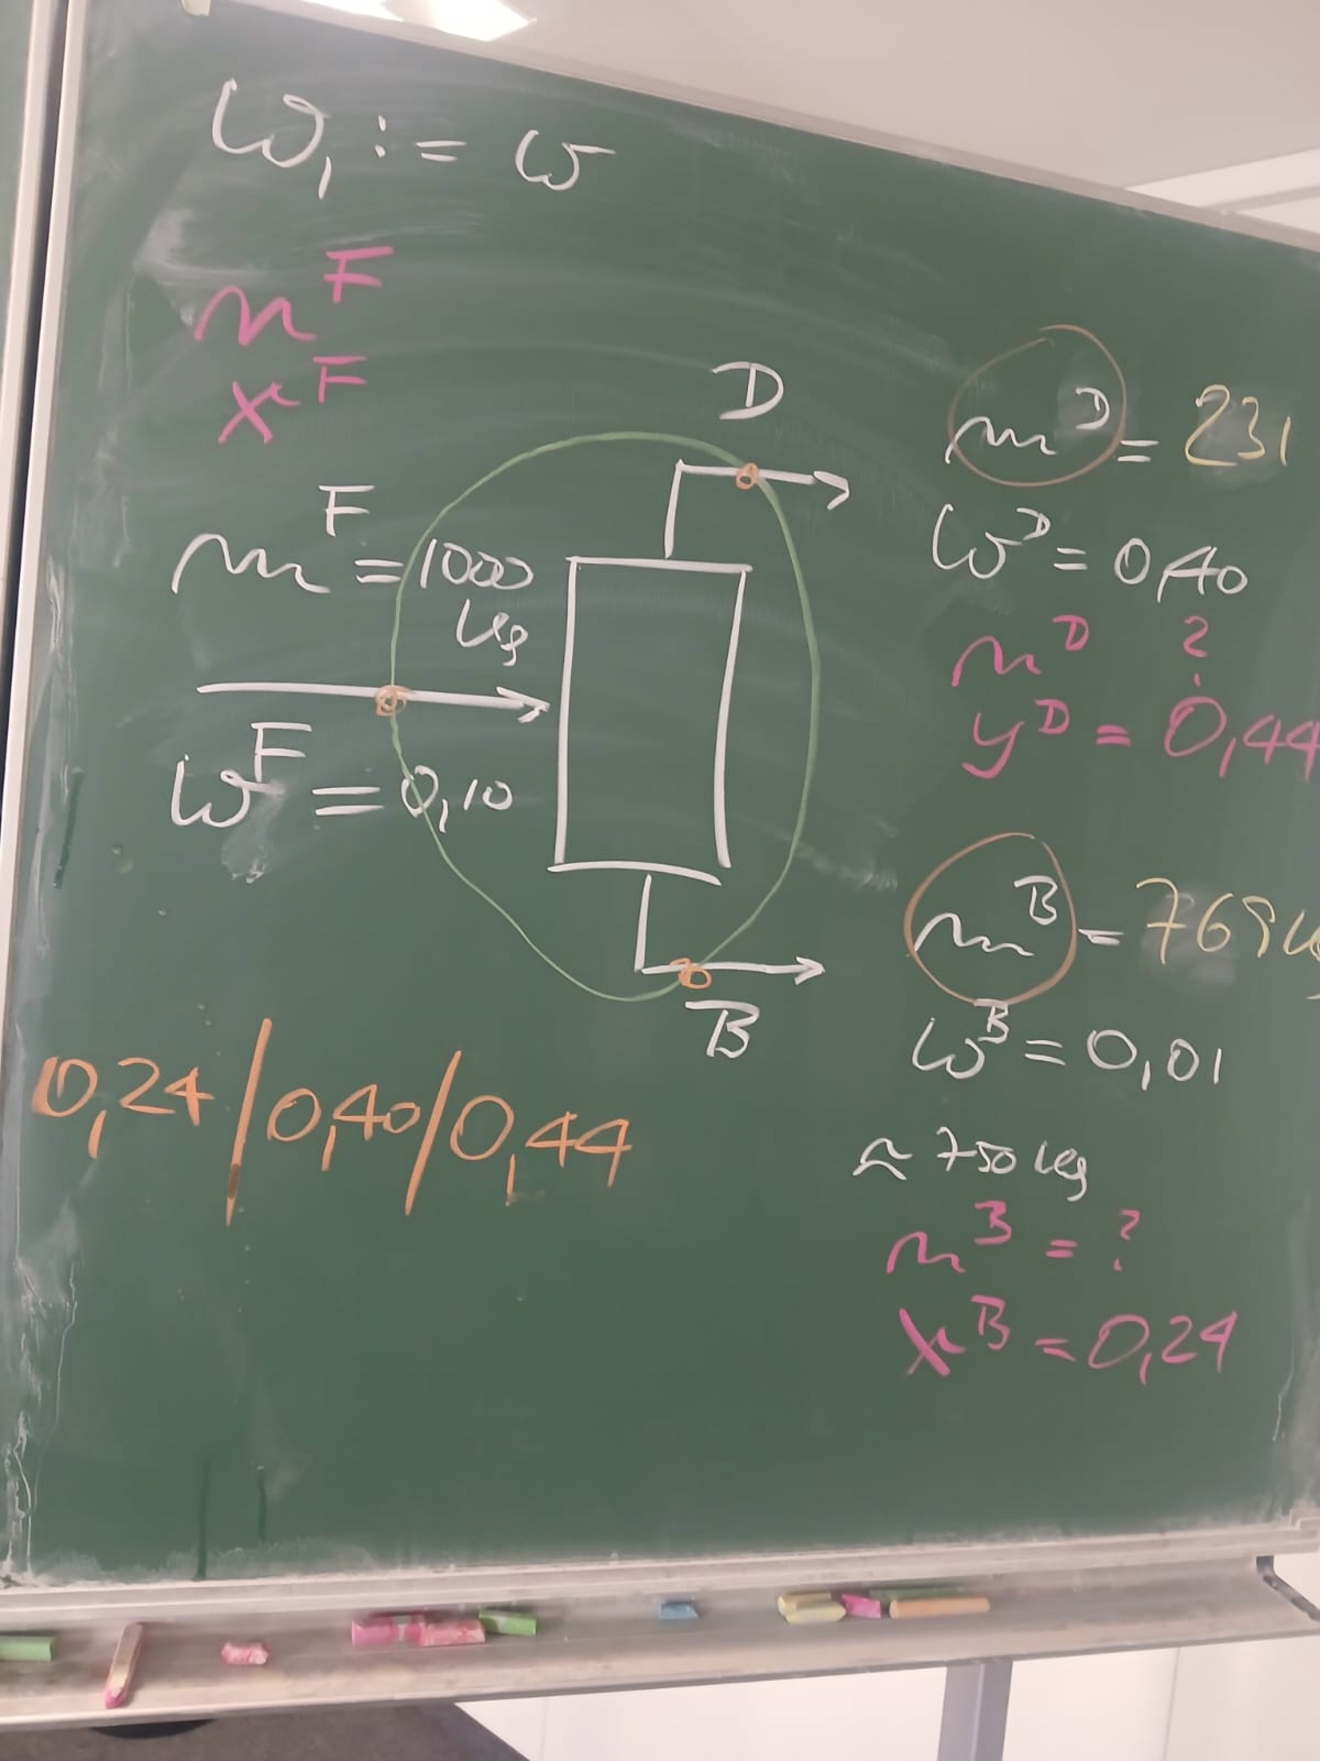 ω₁ := ω
n^F
x^F
D
m^F = 1000
kg
ω^F = 0,10
B
m^D = 231
ω^D = 0,40
n^D ?
y^D = 0,44
m^B = 769 kg
ω^B = 0,01
≈ 750 kg
n^B = ?
x^B = 0,24
0,24 / 0,40 / 0,44